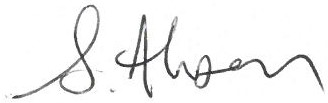 S. Ahsan